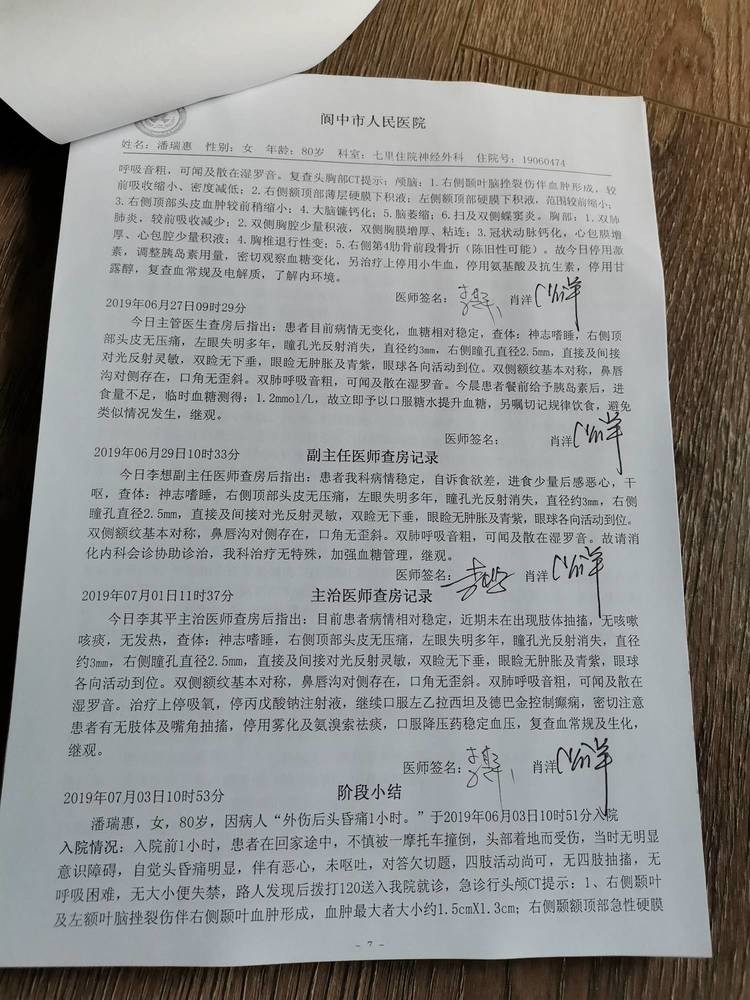 阆中市人民医院
姓名：潘瑞惠 性别：女 年龄：80岁 科室：七里住院神经外科 住院号：19060474
呼吸音粗，可闻及散在湿罗音。复查头胸部CT提示：颅脑：1.右侧颞叶脑挫裂伤伴血肿形成，较
前吸收缩小、密度减低；2.右侧额顶部薄层硬膜下积液；左侧额顶部硬膜下积液，范围较前缩小；
3.右侧顶部头皮血肿较前稍缩小；4.大脑镰钙化；5.脑萎缩；6.扫及双侧蝶窦炎。胸部：1.双肺
肺炎，较前吸收减少；2.双侧胸腔少量积液，双侧胸膜增厚、粘连；3.冠状动脉钙化，心包膜增
厚、心包腔少量积液；4.胸椎退行性变；5.右侧第4肋骨前段骨折（陈旧性可能）。故今日停用激
素，调整胰岛素用量，密切观察血糖变化，另治疗上停用小牛血，停用氨基酸及抗生素，停用甘
露醇，复查血常规及电解质，了解内环境。
医师签名： 肖洋
2019年06月27日09时29分
今日主管医生查房后指出：患者目前病情无变化，血糖相对稳定，查体：神志嗜睡，右侧顶
部头皮无压痛，左眼失明多年，瞳孔光反射消失，直径约3mm，右侧瞳孔直径2.5mm，直接及间接
对光反射灵敏，双睑无下垂，眼睑无肿胀及青紫，眼球各向活动到位。双侧额纹基本对称，鼻唇
沟对侧存在，口角无歪斜。双肺呼吸音粗，可闻及散在湿罗音。今晨患者餐前给予胰岛素后，进
食量不足，临时血糖测得：1.2mmol/L，故立即予以口服糖水提升血糖，另嘱切记规律饮食，避免
类似情况发生，继观。
医师签名： 肖洋
2019年06月29日10时33分 副主任医师查房记录
今日李想副主任医师查房后指出：患者我科病情稳定，自诉食欲差，进食少量后感恶心，干
呕，查体：神志嗜睡，右侧顶部头皮无压痛，左眼失明多年，瞳孔光反射消失，直径约3mm，右侧
瞳孔直径2.5mm，直接及间接对光反射灵敏，双睑无下垂，眼睑无肿胀及青紫，眼球各向活动到位。
双侧额纹基本对称，鼻唇沟对侧存在，口角无歪斜。双肺呼吸音粗，可闻及散在湿罗音。故请消
化内科会诊协助诊治，我科治疗无特殊，加强血糖管理，继观。
医师签名： 肖洋
2019年07月01日11时37分 主治医师查房记录
今日李其平主治医师查房后指出：目前患者病情相对稳定，近期未在出现肢体抽搐，无咳嗽
咳痰，无发热，查体：神志嗜睡，右侧顶部头皮无压痛，左眼失明多年，瞳孔光反射消失，直径
约3mm，右侧瞳孔直径2.5mm，直接及间接对光反射灵敏，双睑无下垂，眼睑无肿胀及青紫，眼球
各向活动到位。双侧额纹基本对称，鼻唇沟对侧存在，口角无歪斜。双肺呼吸音粗，可闻及散在
湿罗音。治疗上停吸氧，停丙戊酸钠注射液，继续口服左乙拉西坦及德巴金控制癫痫，密切注意
患者有无肢体及嘴角抽搐，停用雾化及氨溴索祛痰，口服降压药稳定血压，复查血常规及生化，
继观。
医师签名： 肖洋
2019年07月03日10时53分 阶段小结
潘瑞惠，女，80岁，因病人“外伤后头昏痛1小时。”于2019年06月03日10时51分入院
入院情况：入院前1小时，患者在回家途中，不慎被一摩托车撞倒，头部着地而受伤，当时无明显
意识障碍，自觉头昏痛明显，伴有恶心，未呕吐，对答欠切题，四肢活动尚可，无四肢抽搐，无
呼吸困难，无大小便失禁，路人发现后拨打120送入我院就诊，急诊行头颅CT提示：1、右侧颞叶
及左额叶脑挫裂伤伴右侧颞叶血肿形成，血肿最大者大小约1.5cmX1.3cm；右侧颞额顶部急性硬膜
- 7 -